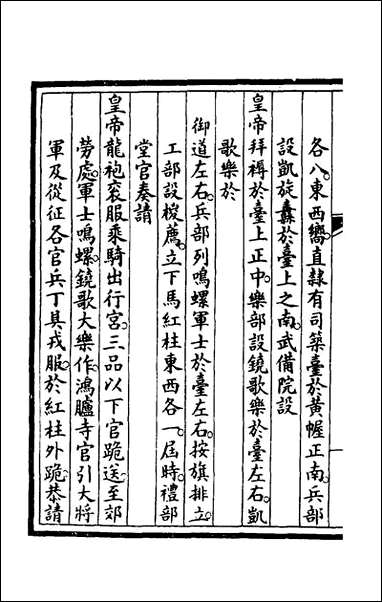 各八東西嚮直隸有司築臺於黃幄正南兵部
設凱旋纛於臺上之南武備院設
皇帝拜褥於臺上正中樂部設鐃歌樂於臺左右凱
歌樂於
御道左右兵部列鳴螺軍士於臺左右按旗排立
工部設椶薦立下馬紅柱東西各一屆時禮部
堂官奏請
皇帝龍袍衮服乘騎出行宮三品以下官跪送至郊
勞處軍士鳴螺鐃歌大樂作鴻臚寺官引大將
軍及從征各官兵丁具戎服於紅柱外跪恭請